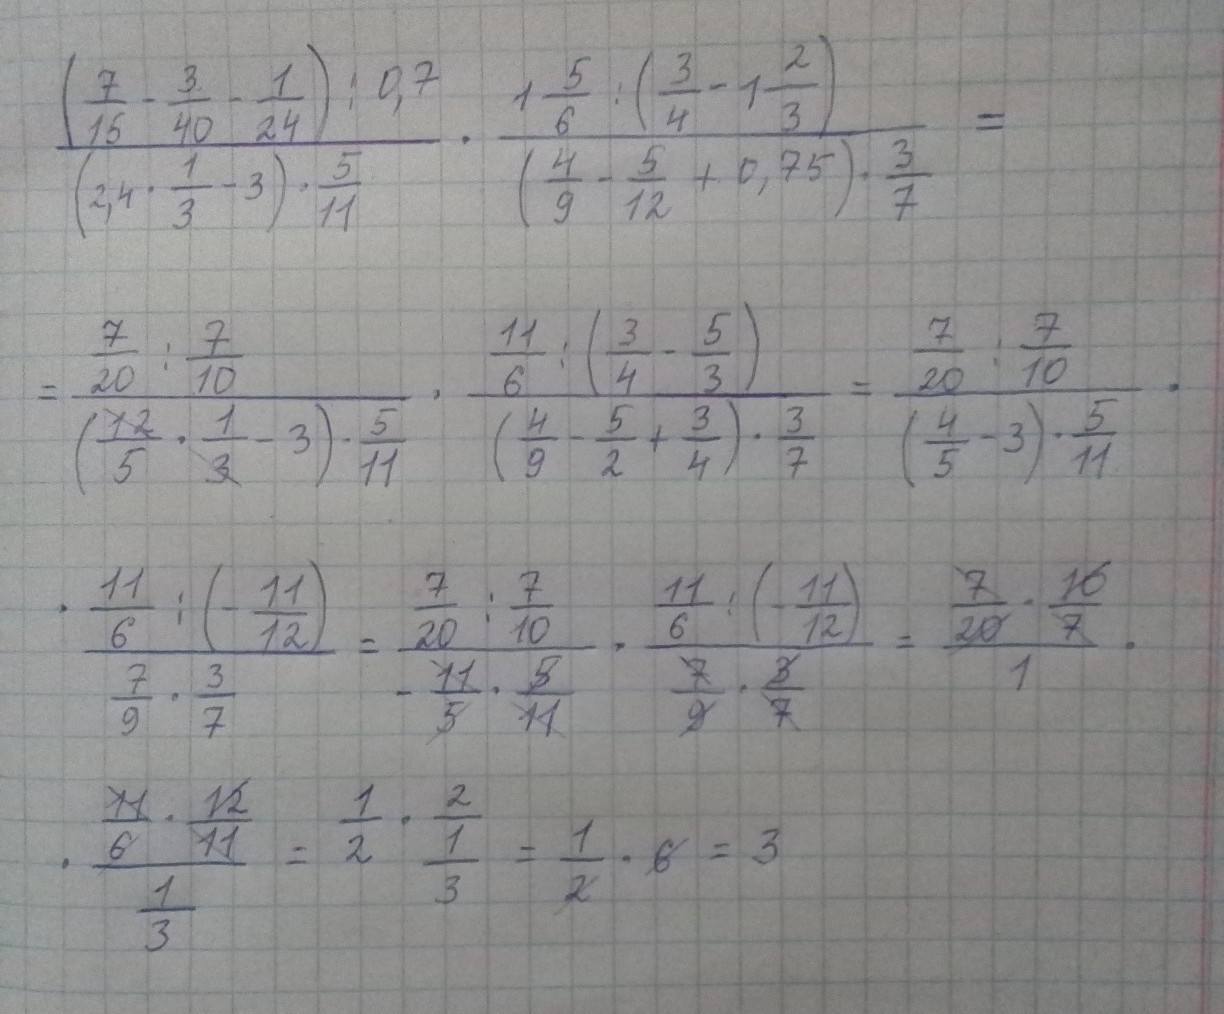 ((7/15 - 3/40 - 1/24) : 0,7) / ((2,4 · 1/3 - 3) · 5/11) · (1 5/6 : (3/4 - 1 2/3)) / ((4/9 - 5/12 + 0,75) · 3/7) =
= (7/20 : 7/10) / ((12/5 · 1/3 - 3) · 5/11) · (11/6 : (3/4 - 5/3)) / ((4/9 - 5/2 + 3/4) · 3/7) = (7/20 : 7/10) / ((4/5 - 3) · 5/11) ·
· (11/6 : (- 11/12)) / (7/9 · 3/7) = (7/20 : 7/10) / (- 11/5 · 5/11) · (11/6 : (- 11/12)) / (7/9 · 3/7) = (7/20 · 10/7) / 1 ·
· (11/6 · 12/11) / (1/3) = 1/2 · 2 / (1/3) = 1/2 · 6 = 3